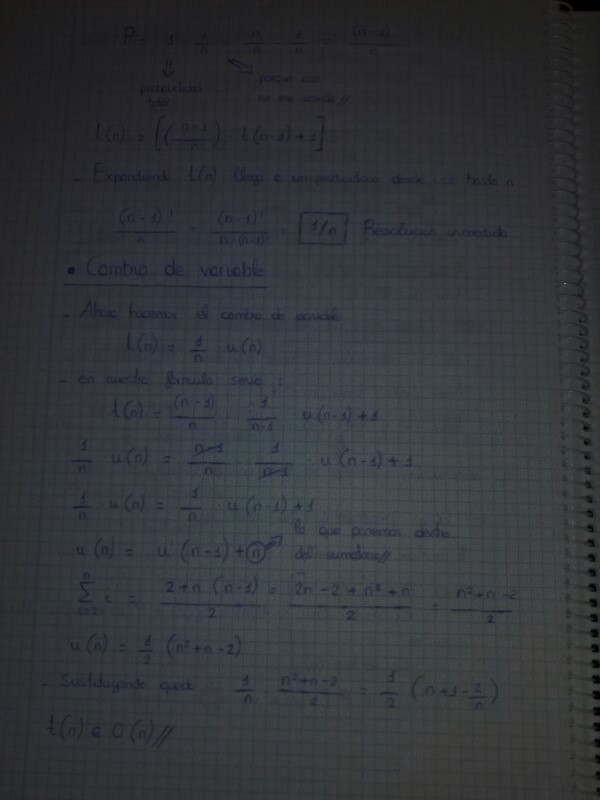 P = 1 - 1/n = n/n - 1/n = (n-1)/n
probabilidad porque uso
total
t(n) = [((n-1)/n) · t(n-1) + 1]
- Expandiendo t(n) llego a un productorio desde hasta n
(n-1)!/n = (n-1)!/(n·(n-1)!) = 1/n Resolución inmediata
• Cambio de variable
- Ahora hacemos el cambio de variable
t(n) = 1/n · u(n)
- en nuestra fórmula sería:
t(n) = (n-1)/n · 1/(n-1) · u(n-1) + 1
1/n · u(n) = (n-1)/n · 1/(n-1) · u(n-1) + 1
1/n · u(n) = 1/n · u(n-1) + 1
u(n) = u(n-1) + n lo que ponemos dentro
del sumatorio//
∑ i=2 n i = (2+n (n-1))/2 = (2n-2+n²+n)/2 = (n²+n-2)/2
u(n) = 1/2 (n²+n-2)
- Sustituyendo queda 1/n · (n²+n-2)/2 = 1/2 (n+1-2/n)
t(n) ∈ O(n)//